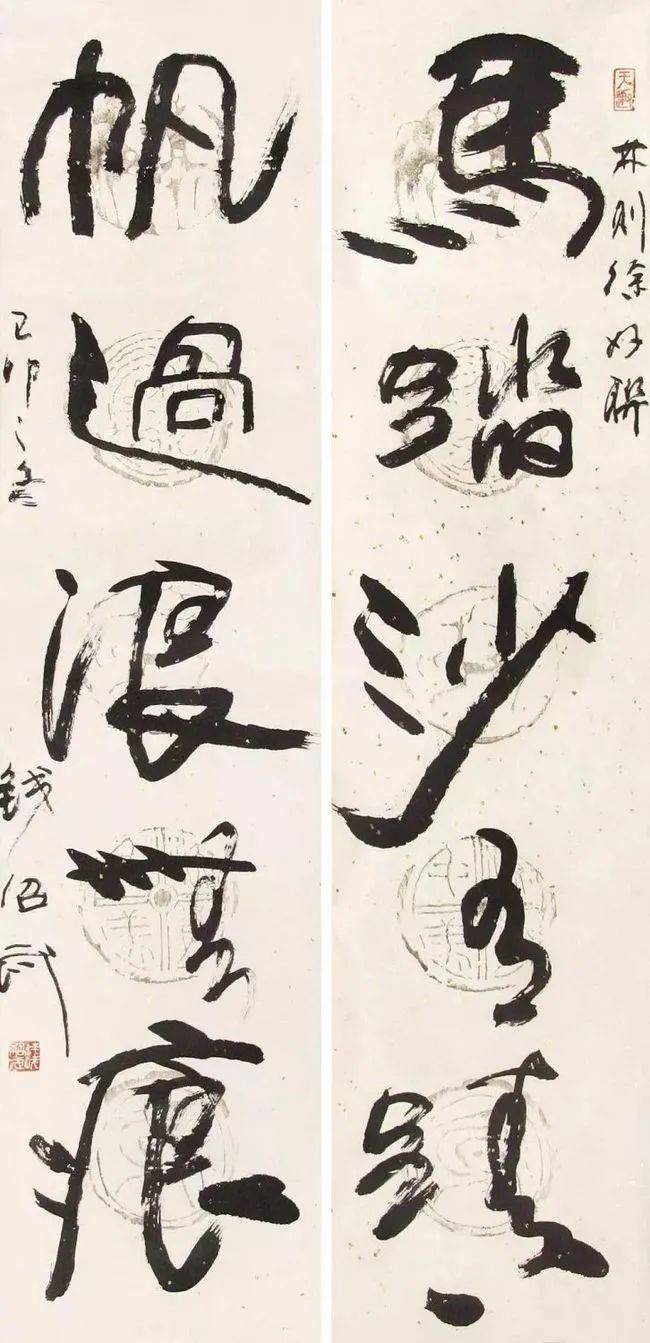 林則徐好聯
馬踏沙有蹟
帆過浪無痕
己卯之
錢紹武